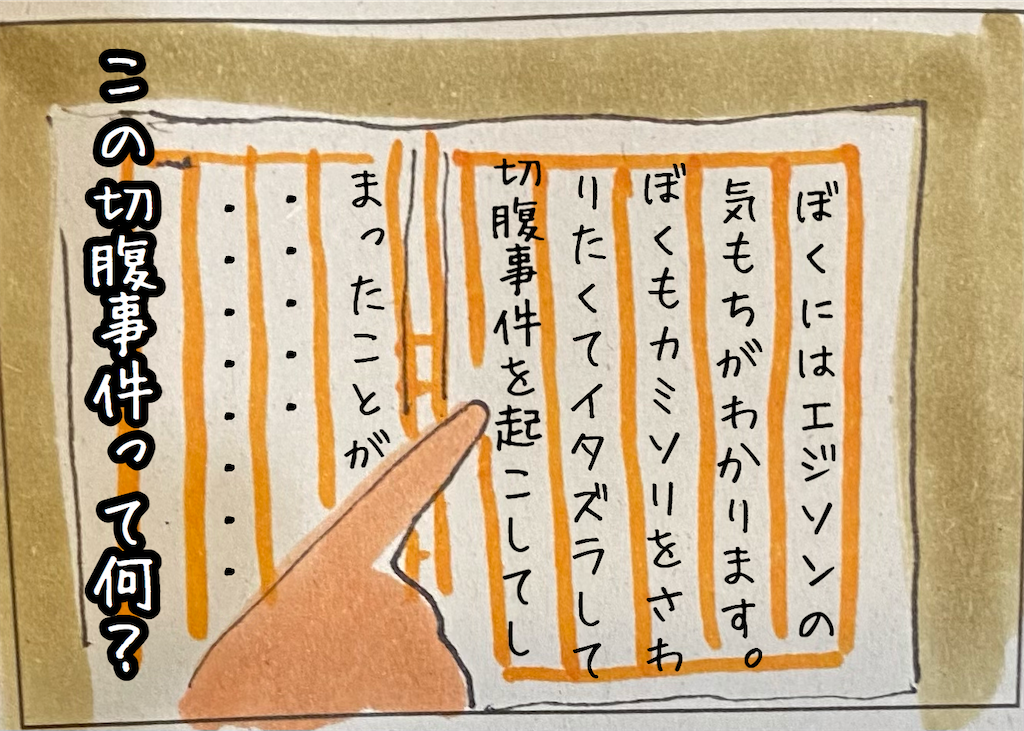 ぼくにはエジソンの
気もちがわかります。
ぼくもカミソリをさわ
りたくてイタズラして
切腹事件を起こしてし
まったことが
・・・・・
・・・・・・・・
この切腹事件って何？